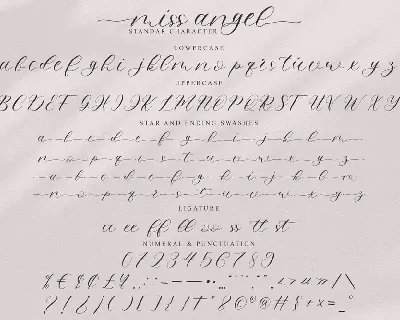 miss angel
STANDAR CHARACTER
LOWERCASE
abcdefghi jklmno pqrstuvwxyz
UPPERCASE
BCDEF GHIJK LMNOPQRST UVWXY
STAR AND ENDING SWASHES
a b c d e f g h i j k l m
n o p q r s t u v w x y z
a b c d e f g h i j k l m
n o p q r s t u v w x y z
LIGATURE
ee ff ll oo ss tt st
NUMERAL & PUNCTUATION
0123456789